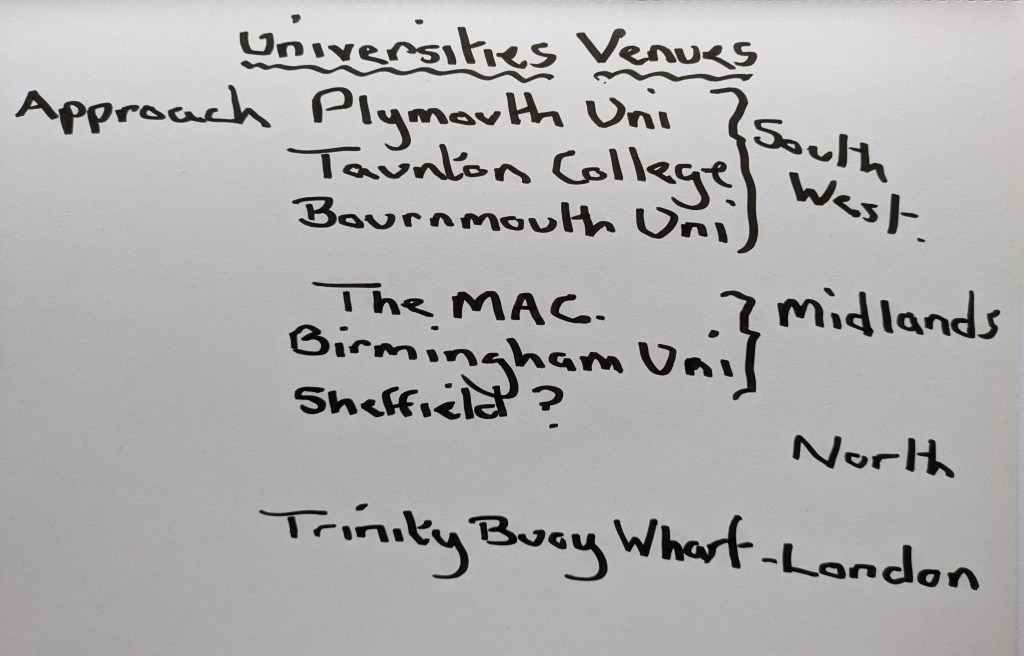 Universities Venues
Approach Plymouth Uni
Taunton College
Bournmouth Uni
South
West.
The MAC.
Birmingham Uni
Midlands
Sheffield ?
North
Trinity Buoy Wharf - London